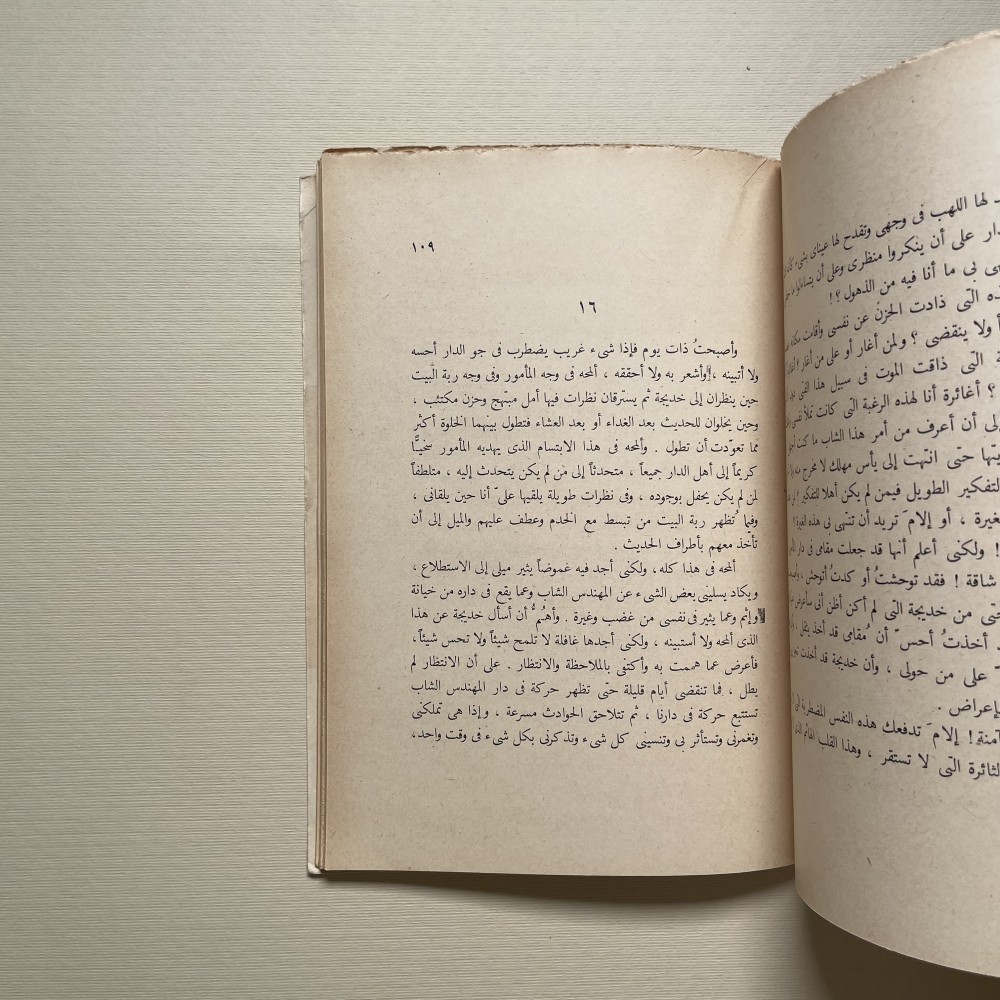 لها اللهب فى وجهى وتقدح لها عيناى بشىء
على أن ينكروا منظرى وعلى أن يتساءلوا
بى ما أنا فيه من الذهول ؟ !
التى ذادت الحزن عن نفسى وأقامت مكانه
ولا ينقضى ؟ ولمن أغار أو على من أغار ؟
التى ذاقت الموت فى سبيل هذا الفتى
؟ أغائرة أنا لهذه الرغبة التى كانت تملأ نفسى
أن أعرف من أمر هذا الشاب ما كنت
حتى انتهت إلى يأس مهلك لا مخرج منه
التفكير الطويل فيمن لم يكن أهلا للتفكير !
، أو إلامَ تريد أن تنتهى بى هذه الغيرة !
! ولكنى أعلم أنها قد جعلت مقامى فى دار
شاقة ! فقد توحشتُ أو كدتُ أتوحش ،
من خديجة التى لم أكن أظن أنى سأعرض
أخذتُ أحسّ أن مُقامى قد أخذ يثقل ،
على من حولى ، وأن خديجة قد أخذت
بإعراض .
آمنة ! إلامَ تدفعك هذه النفس المضطربة
الثائرة التى لا تستقر ، وهذا القلب الهائم
١٠٩
١٦
وأصبحتُ ذات يوم فإذا شىء غريب يضطرب فى جو الدار أحسه
ولا أتبينه ، وأشعر به ولا أحققه ، ألمحه فى وجه المأمور وفى وجه ربة البيت
حين ينظران إلى خديجة ثم يسترقان نظرات فيها أمل مبتهج وحزن مكتئب ،
وحين يخلوان للحديث بعد الغداء أو بعد العشاء فتطول بينهما الخلوة أكثر
مما تعوّدت أن تطول . وألمحه فى هذا الابتسام الذى يهديه المأمور سخيًّا
كريماً إلى أهل الدار جميعاً ، متحدثاً إلى مَن لم يكن يتحدث إليه ، متلطفاً
لمن لم يكن يحفل بوجوده ، وفى نظرات طويلة يلقيها علىّ أنا حين يلقانى ،
وفيما تُظهر ربة البيت من تبسط مع الخدم وعطف عليهم والميل إلى أن
تأخذ معهم بأطراف الحديث .
ألمحه فى هذا كله، ولكنى أجد فيه غموضاً يثير ميلى إلى الاستطلاع ،
ويكاد يسلينى بعض الشىء عن المهندس الشاب وعما يقع فى داره من خيانة
وإثم وعما يثير فى نفسى من غضب وغيرة . وأهُمُّ أن أسأل خديجة عن هذا
الذى ألمحه ولا أستبينه ، ولكنى أجدها غافلة لا تلمح شيئاً ولا تحس شيئاً،
فأعرض عما هممت به وأكتفى بالملاحظة والانتظار . على أن الانتظار لم
يطل ، فما تنقضى أيام قليلة حتى تظهر حركة فى دار المهندس الشاب
تستتبع حركة فى دارنا ، ثم تتلاحق الحوادث مسرعة ، وإذا هى تملكنى
وتغمرنى وتستأثر بى وتنسينى كل شىء وتذكرنى بكل شىء فى وقت واحد،